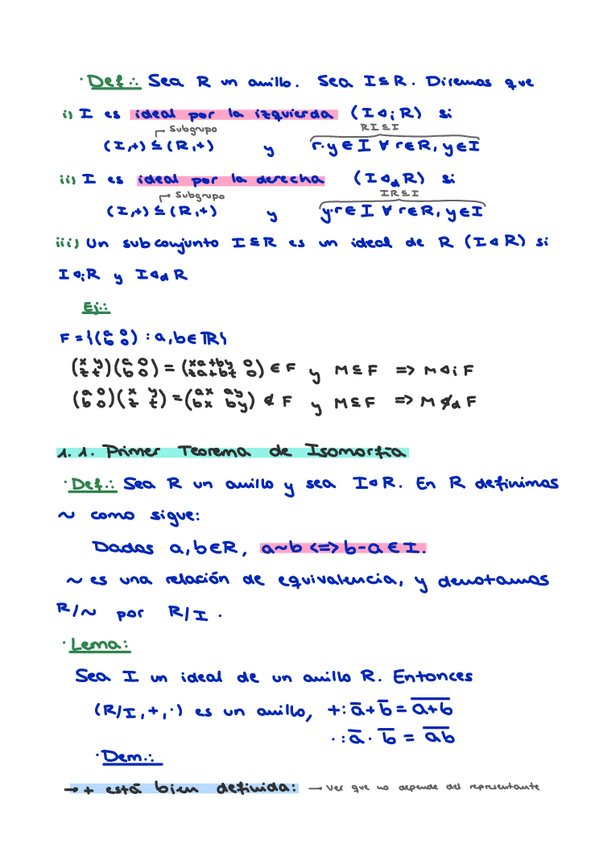 · Def.: Sea R un anillo. Sea I⊆R. Diremos que
i) I es ideal por la izquierda (I⊲ᵢR) si
Subgrupo RI⊆I
(I,+) ≤ (R,+) y r·y∈I ∀r∈R, y∈I
ii) I es ideal por la derecha (I⊲dR) si
Subgrupo IR⊆I
(I,+) ≤ (R,+) y y·r∈I ∀r∈R, y∈I
iii) Un subconjunto I⊆R es un ideal de R (I⊲R) si
I⊲ᵢR y I⊲dR
Ej.:
F = {(a 0; b 0) : a,b∈ℝ}
(x y; z t)(a 0; b 0) = (xa+by 0; za+bt 0) ∈ F y M⊆F => M⊲ᵢF
(a 0; b 0)(x y; z z) = (ax ay; bx by) ∉ F y M⊆F => M⋪dF
1.1. Primer Teorema de Isomorfía
· Def.: Sea R un anillo y sea I⊲R. En R definimos
~ como sigue:
Dadas a,b∈R, a~b <=> b-a∈I.
~ es una relación de equivalencia, y denotamos
R/~ por R/I.
· Lema:
Sea I un ideal de un anillo R. Entonces
(R/I,+,·) es un anillo, +: a̅+b̅ = a̅+̅b̅
·: a̅·b̅ = a̅b̅
· Dem.:
→ + está bien definida: → Ver que no depende del representante